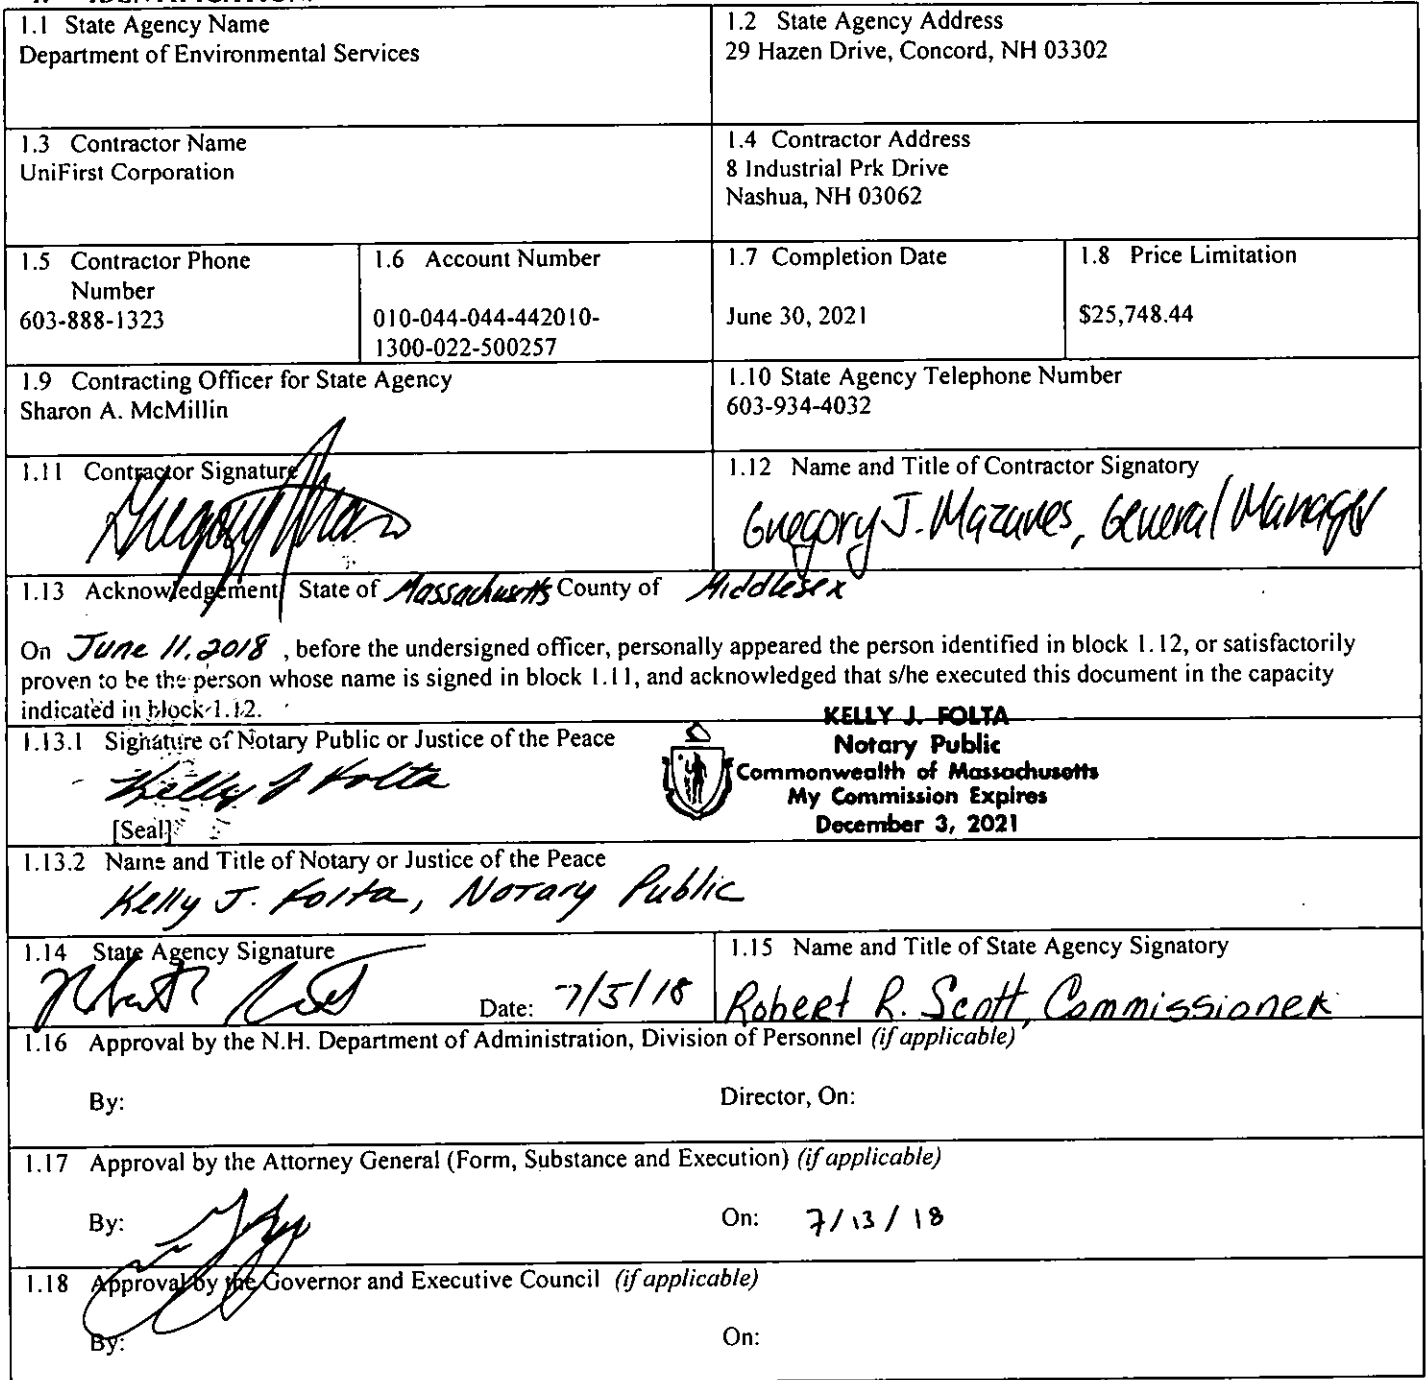 1.1 State Agency Name
Department of Environmental Services
1.2 State Agency Address
29 Hazen Drive, Concord, NH 03302
1.3 Contractor Name
UniFirst Corporation
1.4 Contractor Address
8 Industrial Prk Drive
Nashua, NH 03062
1.5 Contractor Phone
Number
603-888-1323
1.6 Account Number
010-044-044-442010-
1300-022-500257
1.7 Completion Date
June 30, 2021
1.8 Price Limitation
$25,748.44
1.9 Contracting Officer for State Agency
Sharon A. McMillin
1.10 State Agency Telephone Number
603-934-4032
1.11 Contractor Signature
1.12 Name and Title of Contractor Signatory
Gregory J. Mazares, General Manager
1.13 Acknowledgement State of Massachusetts County of Middlesex
On June 11, 2018 , before the undersigned officer, personally appeared the person identified in block 1.12, or satisfactorily
proven to be the person whose name is signed in block 1.11, and acknowledged that s/he executed this document in the capacity
indicated in block 1.12.
1.13.1 Signature of Notary Public or Justice of the Peace
Kelly J Folta
[Seal]
KELLY J. FOLTA
Notary Public
Commonwealth of Massachusetts
My Commission Expires
December 3, 2021
1.13.2 Name and Title of Notary or Justice of the Peace
Kelly J. Folta, Notary Public
1.14 State Agency Signature
Date: 7/5/18
1.15 Name and Title of State Agency Signatory
Robert R. Scott, Commissioner
1.16 Approval by the N.H. Department of Administration, Division of Personnel (if applicable)
By:
Director, On:
1.17 Approval by the Attorney General (Form, Substance and Execution) (if applicable)
By:
On: 7/13/18
1.18 Approval by the Governor and Executive Council (if applicable)
By:
On: